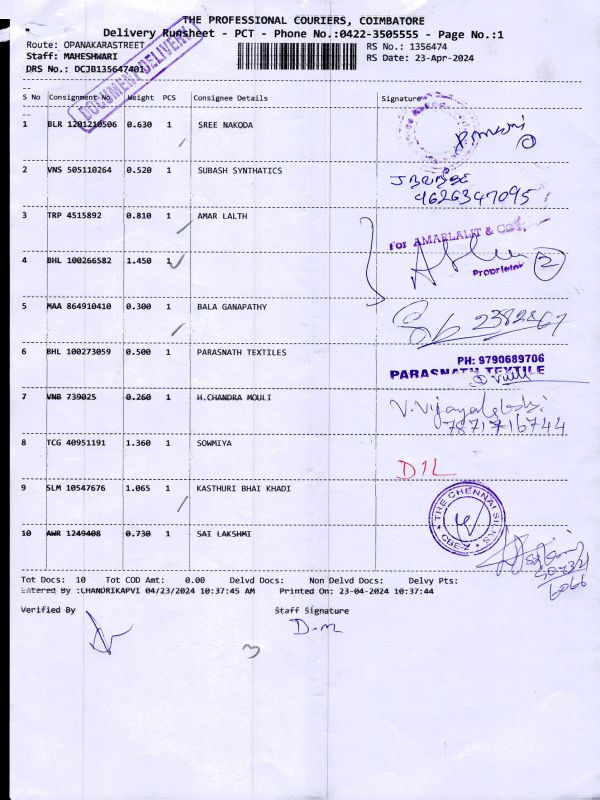 THE PROFESSIONAL COURIERS, COIMBATORE
Delivery Runsheet - PCT - Phone No.:0422-3505555 - Page No.:1
Route: OPANAKARASTREET
RS No.: 1356474
Staff: MAHESHWARI
RS Date: 23-Apr-2024
DRS No.: DCJB135647401
DOCUMENT DELIVERY
S No Consignment No. Weight PCS Consignee Details Signature
1 BLR 1201210506 0.630 1 SREE NAKODA
2 VNS 505110264 0.520 1 SUBASH SYNTHATICS
9626347095
3 TRP 4515892 0.810 1 AMAR LALTH
For AMARLALIT & COY.
4 BHL 100266582 1.450 1
Proprietor
2
5 MAA 864910410 0.300 1 BALA GANAPATHY
2382467
6 BHL 100273059 0.500 1 PARASNATH TEXTILES
PH: 9790689706
PARASNATH TEXTILE
7 VNB 739025 0.260 1 H.CHANDRA MOULI
V. Vijayalakshi
7871716744
8 TCG 40951191 1.360 1 SOWMIYA
D1L
9 SLM 10547676 1.065 1 KASTHURI BHAI KHADI
THE CHENNAI SILKS
CBE-2
10 AWR 1249408 0.730 1 SAI LAKSHMI
Tot Docs: 10 Tot COD Amt: 0.00 Delvd Docs: Non Delvd Docs: Delvy Pts:
Entered By :CHANDRIKAPVI 04/23/2024 10:37:45 AM Printed On: 23-04-2024 10:37:44
Verified By Staff Signature
D.m
3